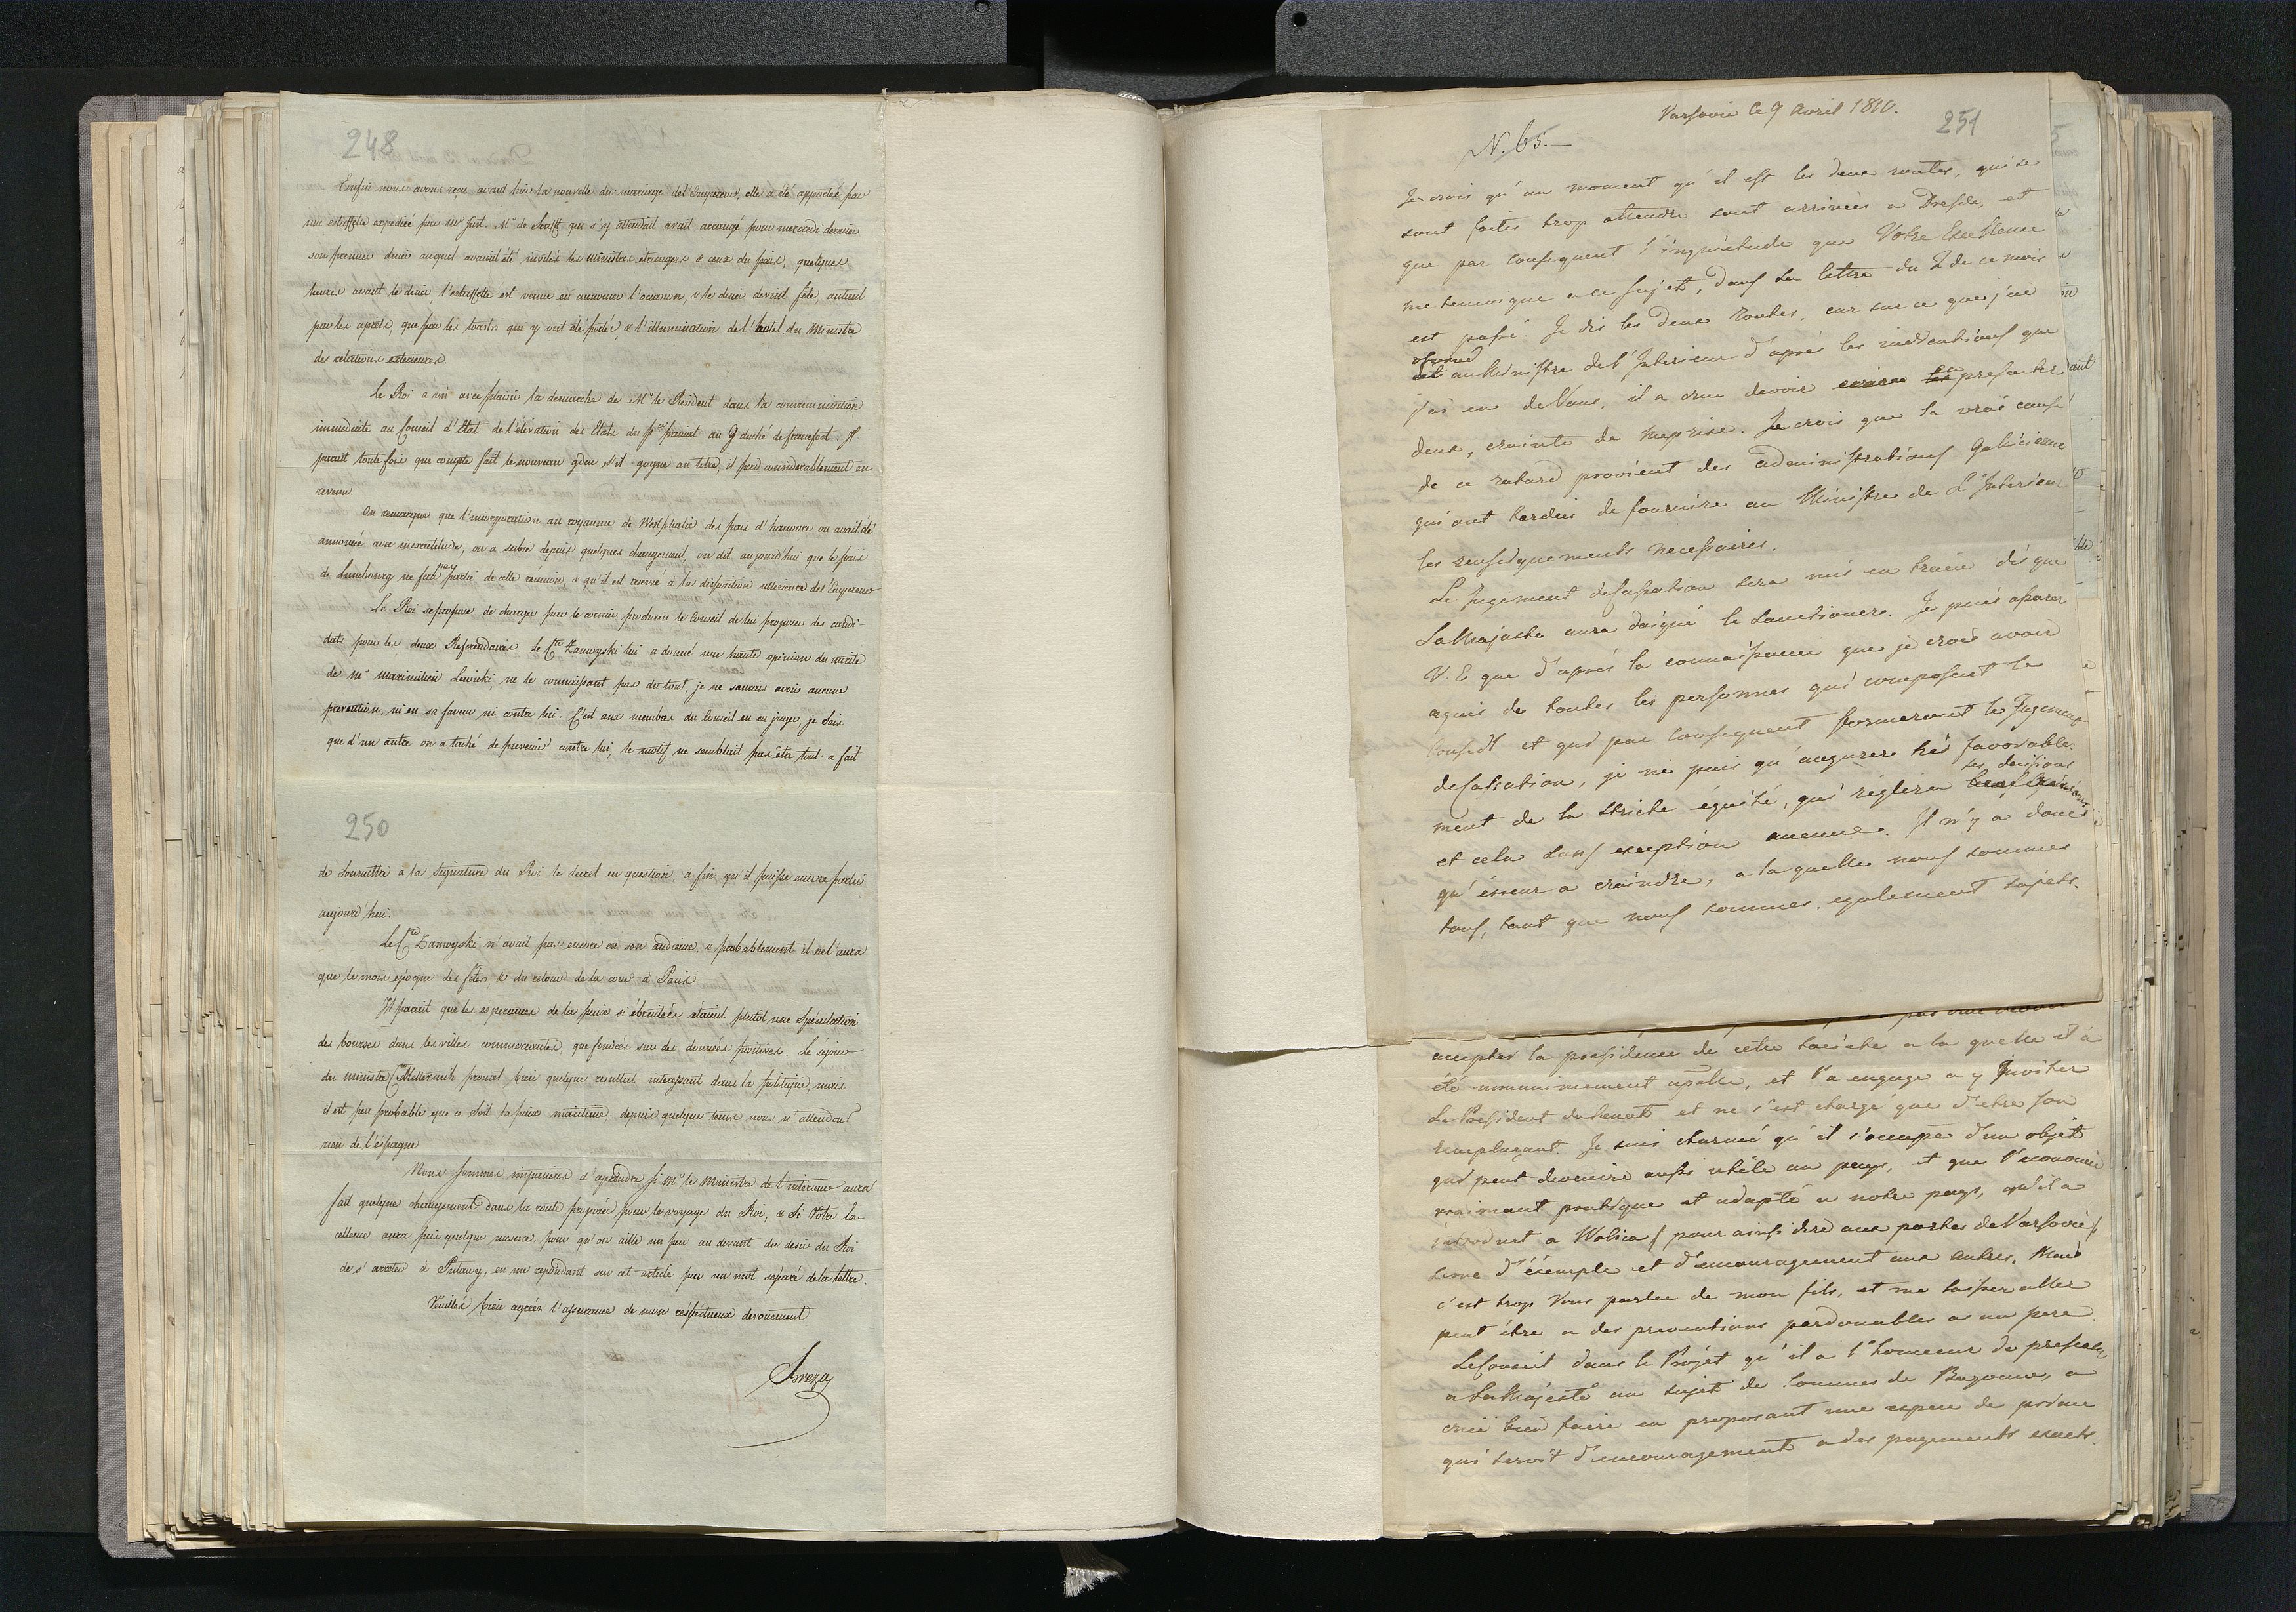 248
Enfin nous avons reçu avant hier la nouvelle du mariage de l'Empereur, elle a été apportée par
une estaffette expediée par Mr Just. Mr de Senfft qui s'y attendait avait arrangé pour mercredi dernier
son premier diner auquel avaient été invités les ministres étrangers & ceux du païs, quelques
heures avant le diner, l'estaffette est venue en annoncer l'occasion, & le diner devint fête, autant
par les apprêts que par les toasts qui y ont été portés, & l'illumination de l'hotel du Ministre
des relations exterieures.
Le Roi a vû avec plaisir la demarche de Mr le Resident dans la communication
immediate au Conseil d'Etat de l'élevation des Etats du Pce primat au g duché de francfort. Il
parait toute fois que compte fait le nouveau gduc s'il gagne au titre, il perd considerablement en
revenu.
On remarque que l'incorporation au royaume de Westphalie des païs d'hanovre ou avait été
annoncée avec inexactitude, ou a subie depuis quelques changement, on dit aujourd'hui que le païs
de Lunebourg ne fait pas partie de cette réunion, & qu'il est reservé à la disposition ulterieure de l'Empereur
Le Roi se propose de charger par le courier prochain le Conseil de lui proposer des candi-
dats pour les deux Referendaires. Le Cte Zamoyski lui a donné une haute opinion du merite
de Mr Maximilien Lewicki, ne le connaissant pas du tout, je ne saurais avoir aucune
prevention, ni en sa faveur ni contre lui. C'est aux membres du Conseil en en juger, je sais
que d'un autre on a taché de prevenir contre lui, le motif ne semblait pas être tout-a fait
250
de soumettre à la signature du Roi le decret en question, à fin qu'il puisse encore partir
aujourd'hui.
Le Cte Zamoyski n'avait pas encore eû son audience, & probablement il ne l'aura
que le mois epoque des fêtes & du retour de la cour à Paris
Il parait que les esperances de la paix si ébruitées étaient plutôt une spéculation
des bourses dans les villes commerçantes, que fondées sur des données positives. Le sejour
du ministre Cte Metternich promet bien quelque resultat interessant dans la politique, mais
il est peu probable que ce soit la paix maritime, depuis quelque tems nous n'attendons
rien de l'éspagne
Nous sommes impatiens d'aprendre si Mr le Ministre de l'interieur aura
fait quelque changement dans la route proposée pour le voyage du Roi, & si Votre Ex-
cellence aura pris quelque mesure pour qu'on aille un peu au devant du desir du Roi
de s'arreter à Pulawy, en me repondant sur cet article par un mot séparé de la lettre.
Veuilléz bien agréer l'assurance de mon réspectueux devouement
Breza
Varsovie Ce 9 Avril 1810.
251
N. 65.
Je crois qu'au moment qu'il est les deux routes, qui se
sont faites trop attendre sont arrivées a Dresde, et
que par consequent l'inquiétude que Votre Excellence
me temoigne a ce sujet, dans sa lettre du 2 de ce mois
est passé. Je dis les deux Routes, car sur ce que j'ai
observé
dit au Ministre de l'Interieur d'aprè les indications que
j'ai eu de Vous, il a crue devoir ecrire les en presenter
deux, crainte de meprise. Je crois que la vrai cause
de ce retard provient des administrations Galiciennes
qui ont tardées de fournire au Ministre de L'Interieur
les renseignements necessaires.
Le Jugement de Cassation sera mis en train dès que
Sa Majeste aura daigné le sanctioner. Je puis assurer
V. E que d'aprés la connaissance que je crois avoir
aquis de toutes les personnes qui composent le
Conseil et qui par consequent formeront le Jugement
de Cassation, je ne puis qu'augurer trés favorable-
ses decisions
ment de la stricte équité, qui réglera
et cela sans exception aucune. Il n'y a donc
qu'érreur a craindre, a la quelle nous sommes
tous, tant que nous sommes egalement sujets.
accepter la présidence de cette société a la quelle il a
été unanimement apellé, et l'a engagé a y inviter
Le President du Senat et ne s'est chargé que d'etre son
remplaçant. Je suis charmé qu'il s'occupe d'un objet
qui peut devenire aussi utile au pays, et que l'economie
vraiment pratique et adapté a notre pays, qu'il a
introduit a Wolica / pour ainsi dire aux portes de Varsovie /
serve d'éxemple et d'encouragement aux autres. Mais
c'est trop Vous parler de mon fils, et me laisser aller
peut être a des preventions pardonables a un pere.
Le Conseil dans le Projét qu'il a l'honneur de presenter
a Sa Majesté au sujet de Sommes de Bayonne, a
crû bien faire en proposant une espece de prime
qui seroit d'encouragement a des payements exacts.